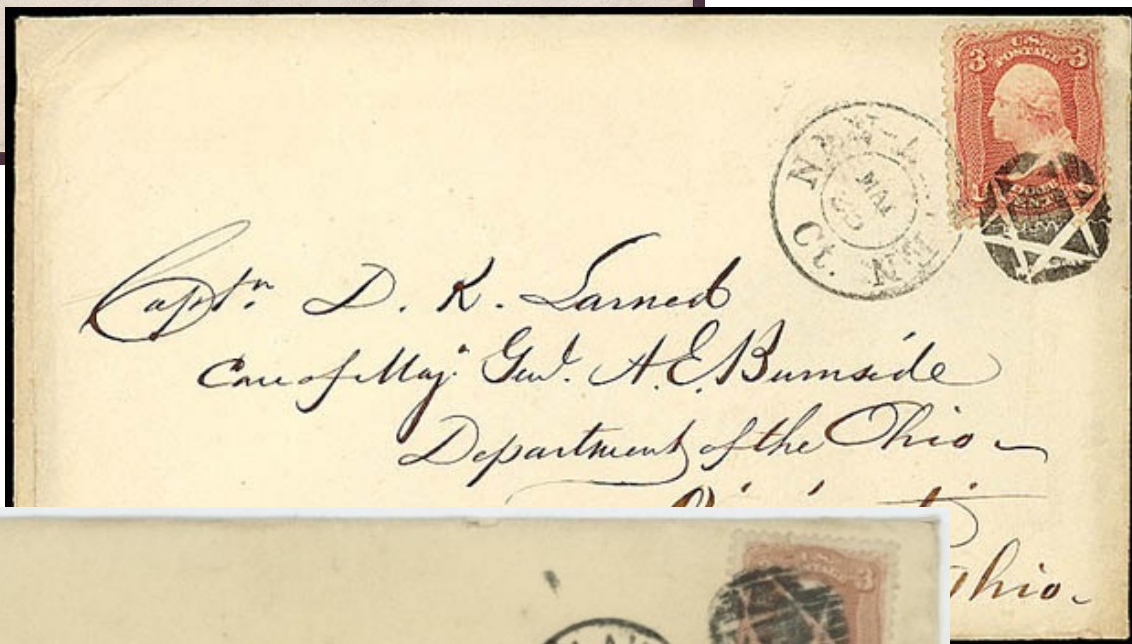 U.S.
POSTAGE
3 3
Ct.
Captn. D. R. Larned
Care of Maj. Genl. A. E. Burnside
Department of the Ohio
Ohio.
3